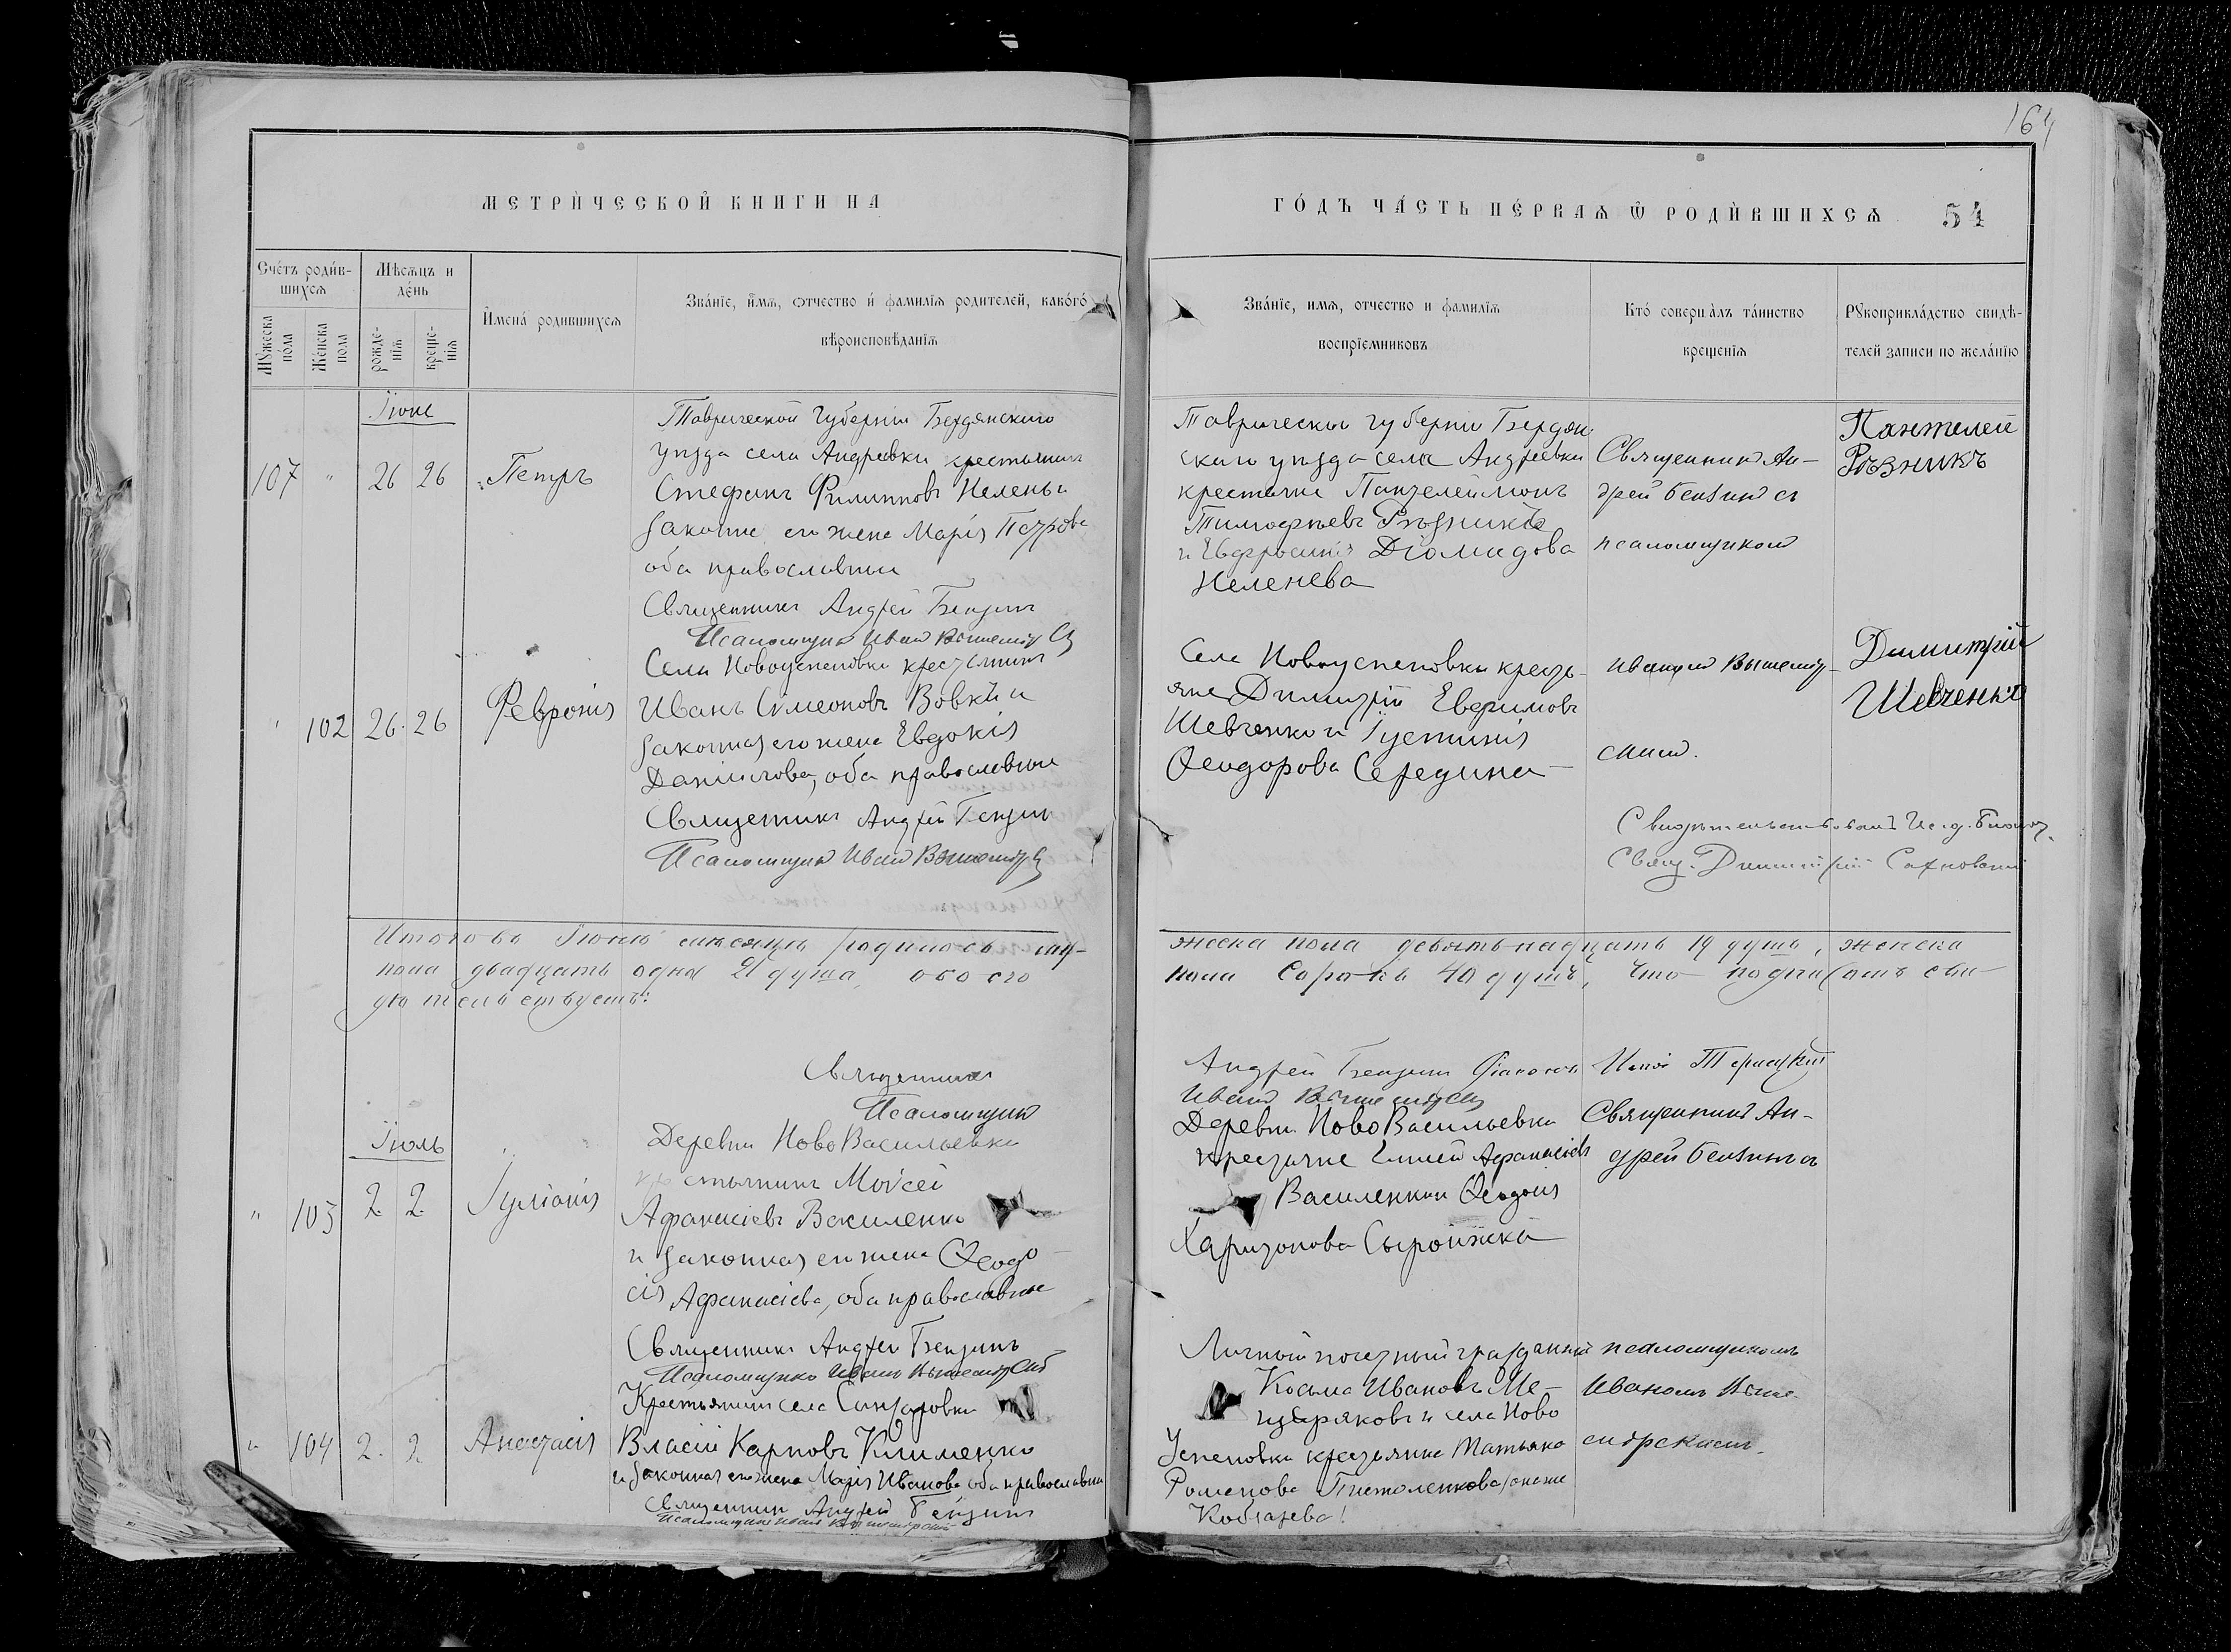 164
МЕТРИ́ЧЕСКОЙ КНИГИ НА
ГО́ДЪ ЧА́СТЬ ПЕ́РВАѦ Ѿ РОДИ́ВШИХСѦ 54
Сче́тъ роди́в-
шихсѧ
Мꙋ́жеска
по́ла
Же́нска
пола
Мѣсѧцъ и
де́нь
рожде-
нїѧ
креще-
нїѧ
И҆мена̀ родившихсѧ
Зва́нїе, и҆́мѧ, ѻтчество и҆ фамилїѧ родителей, како́гѡ
вѣроисповѣданїѧ
Зва́нїе, имѧ, отчество и фамилїѧ
воспрїемниковъ
Кто́ соверша̀лъ та́инство
крещенїѧ
Рꙋкоприкла́дство свидѣ-
телей записи по жела́нїю
Іюнь
107 " 26 26 Петръ
Таврической Губерніи Бердянскаго
уѣзда села Андреевки крестьянинъ
Стефанъ Филипповъ Неленъ и
законная его жена Марія Петрова
оба православные
Священникъ Андрей Бензинъ
Псаломщикъ Иванъ
Таврическои губерніи Бердян-
скаго уѣзда села Андреевки
крестьяне Пантелеимонъ
Тимоѳѣевъ Рѣзникъ
и Евфросинія Діомидова
Неленева
Священникъ Ан-
дрей Бензинъ съ
псаломщикомъ
Пантелей
Рѣзникъ
" 102 26 26 Февронія
Села Новоуспеновки крестьянинъ
Иванъ Симеоновъ Вовкъ и
законная его жена Евдокія
Даніилова, оба православные
Священникъ Андрей Бензинъ
Псаломщикъ Иванъ
Села Новоуспеновки кресть-
яне Димитрій Евфимовъ
Шевченко и Іустинія
Ѳеодорова Середина
Иваномъ
скимъ.
Димитрій
Шевченко
Свидѣтельствовалъ И. д. Благоч.
Свящ. Димитрій
Итого въ Іюнѣ мѣсяцѣ родилось му-
жеска пола девятьнадцать 19 душъ, женска
пола двадцать одна 21 душа, обоего
пола сорокъ 40 душъ, что подписомъ сви-
дѣтельствуемъ:
Священникъ
Андрей Бензинъ Діаконъ
Псаломщикъ
Иванъ
Іюль
" 103 2 2 Іуліанія
Деревни НовоВасильевки
крестьянинъ Моѵсей
Афанасіевъ Василенко
и законная его жена Ѳеодо-
сія Афанасіева, оба православные
Священникъ Андрей Бензинъ
Псаломщикъ Иванъ
Деревни НовоВасильевки
крестьяне Афанасіевъ
Василенко и Ѳеодосія
Харитонова Сыроижка
Священникъ Ан-
дрей Бензинъ съ
" 104 2 2 Анастасія
Крестьянинъ села
Власій Карповъ Клименко
и законная его жена Марія Иванова оба православные
Священникъ Андрей Бензинъ
Псаломщикъ Иванъ
Личный почетный гражданинъ
Косьма Ивановъ Ме-
щеряковъ и села Ново
Успеновки крестьянка Татьяна
Романова
Кобзарева
псаломщикомъ
Иваномъ